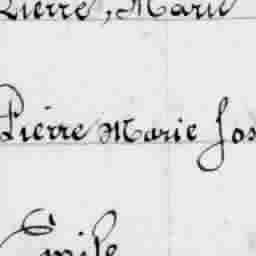 Pierre, Marie
Pierre Marie Jos
Emile